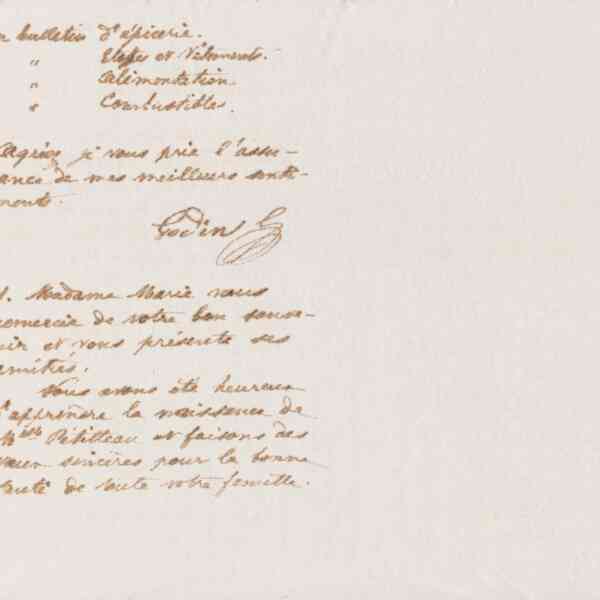 n bulletin d'épicerie.
" Etoffes et Vêtements.
" Alimentation.
" Combustibles.
Agréez je vous prie l'assu-
rance de mes meilleurs senti-
ments.
Godin
S. Madame Marie vous
remercie de votre bon souve-
nir et vous présente ses
amitiés.
Nous avons été heureux
d'apprendre la naissance de
Mlle Pétilleau et faisons des
vœux sincères pour la bonne
santé de toute votre famille.